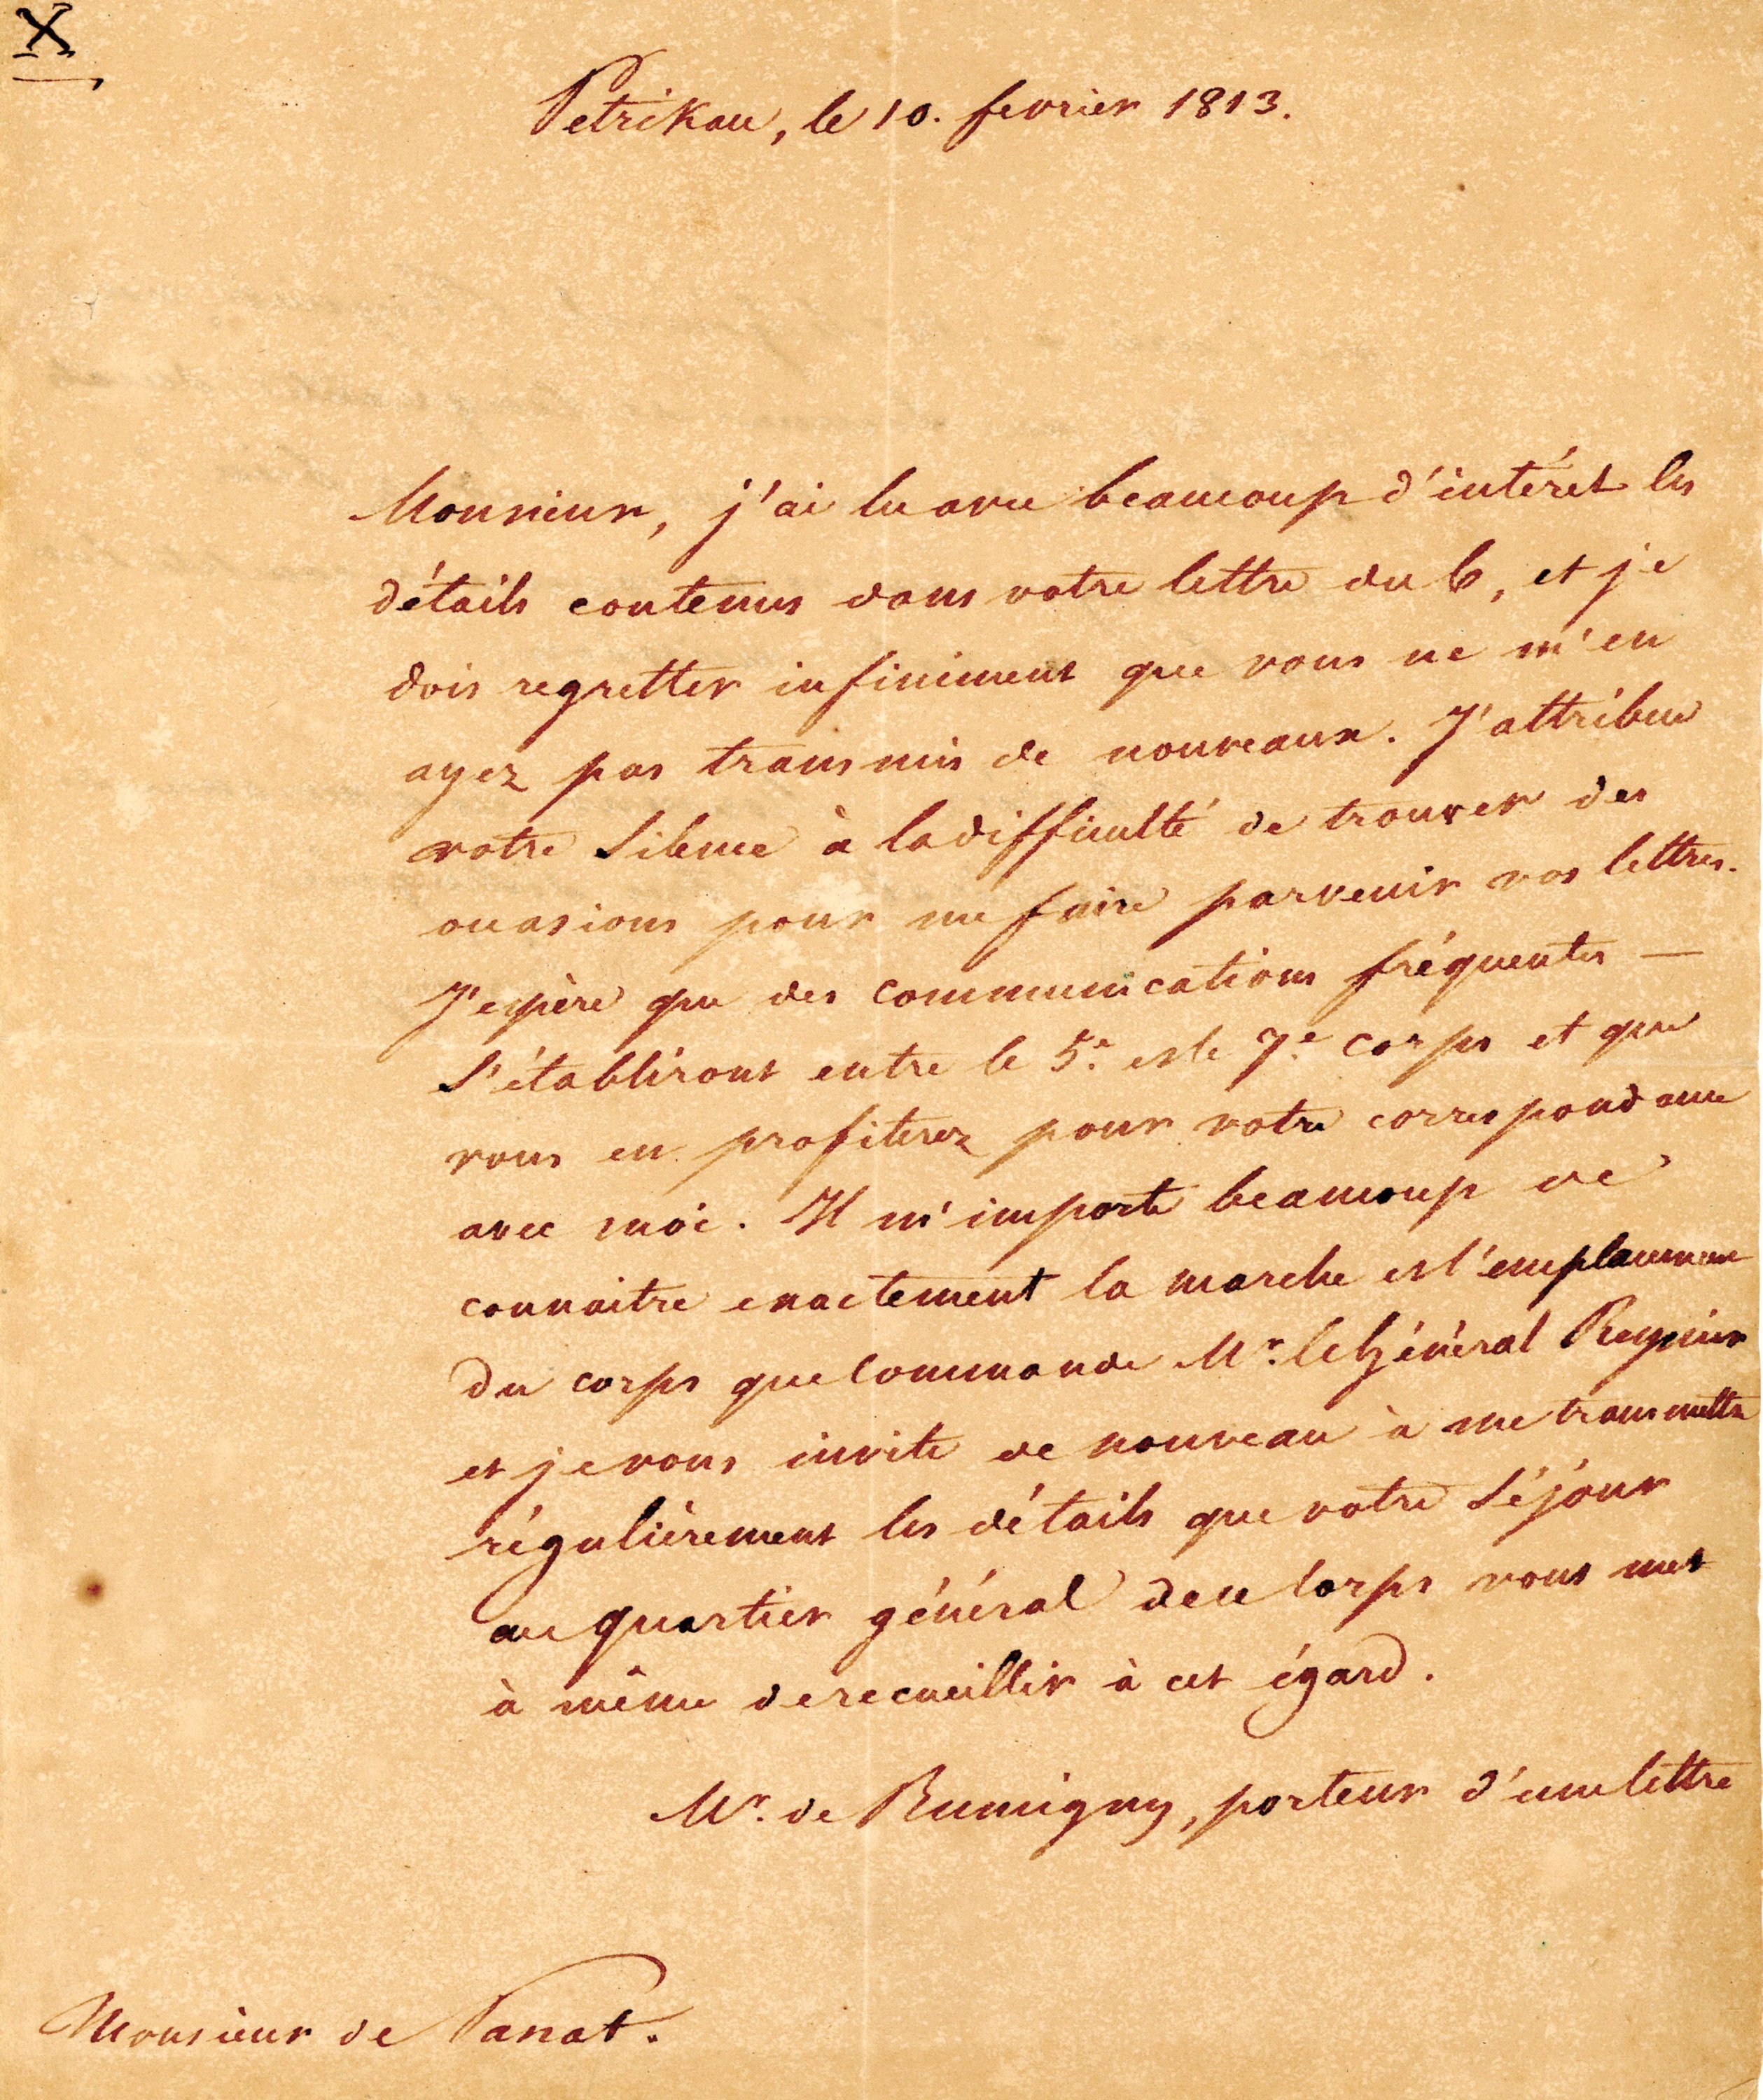 X
Petrikau, le 10. fevrier 1813.
Monsieur, j'ai lu avec beaucoup d'intéret les
détails contenus dans votre lettre du 6, et je
dois regretter infiniment que vous ne m'en
ayez pas transmis de nouveaux. J'attribue
votre silence à la difficulté de trouver des
occasions pour me faire parvenir vos lettres.
J'espère que des communications fréquentes —
s'établiront entre le 5.e et le 7.e corps et que
vous en profiterez pour votre correspondance
avec moi. Il m'importe beaucoup de
connaitre exactement la marche et l'emplacement
du corps que commande Mr. le Général Reynier
et je vous invite de nouveau à me transmettre
régulièrement les détails que votre séjour
au quartier général de ce corps vous met
à même de recueillir à cet égard.
Mr. de Rumigny, porteur d'une lettre
Monsieur de Panat.